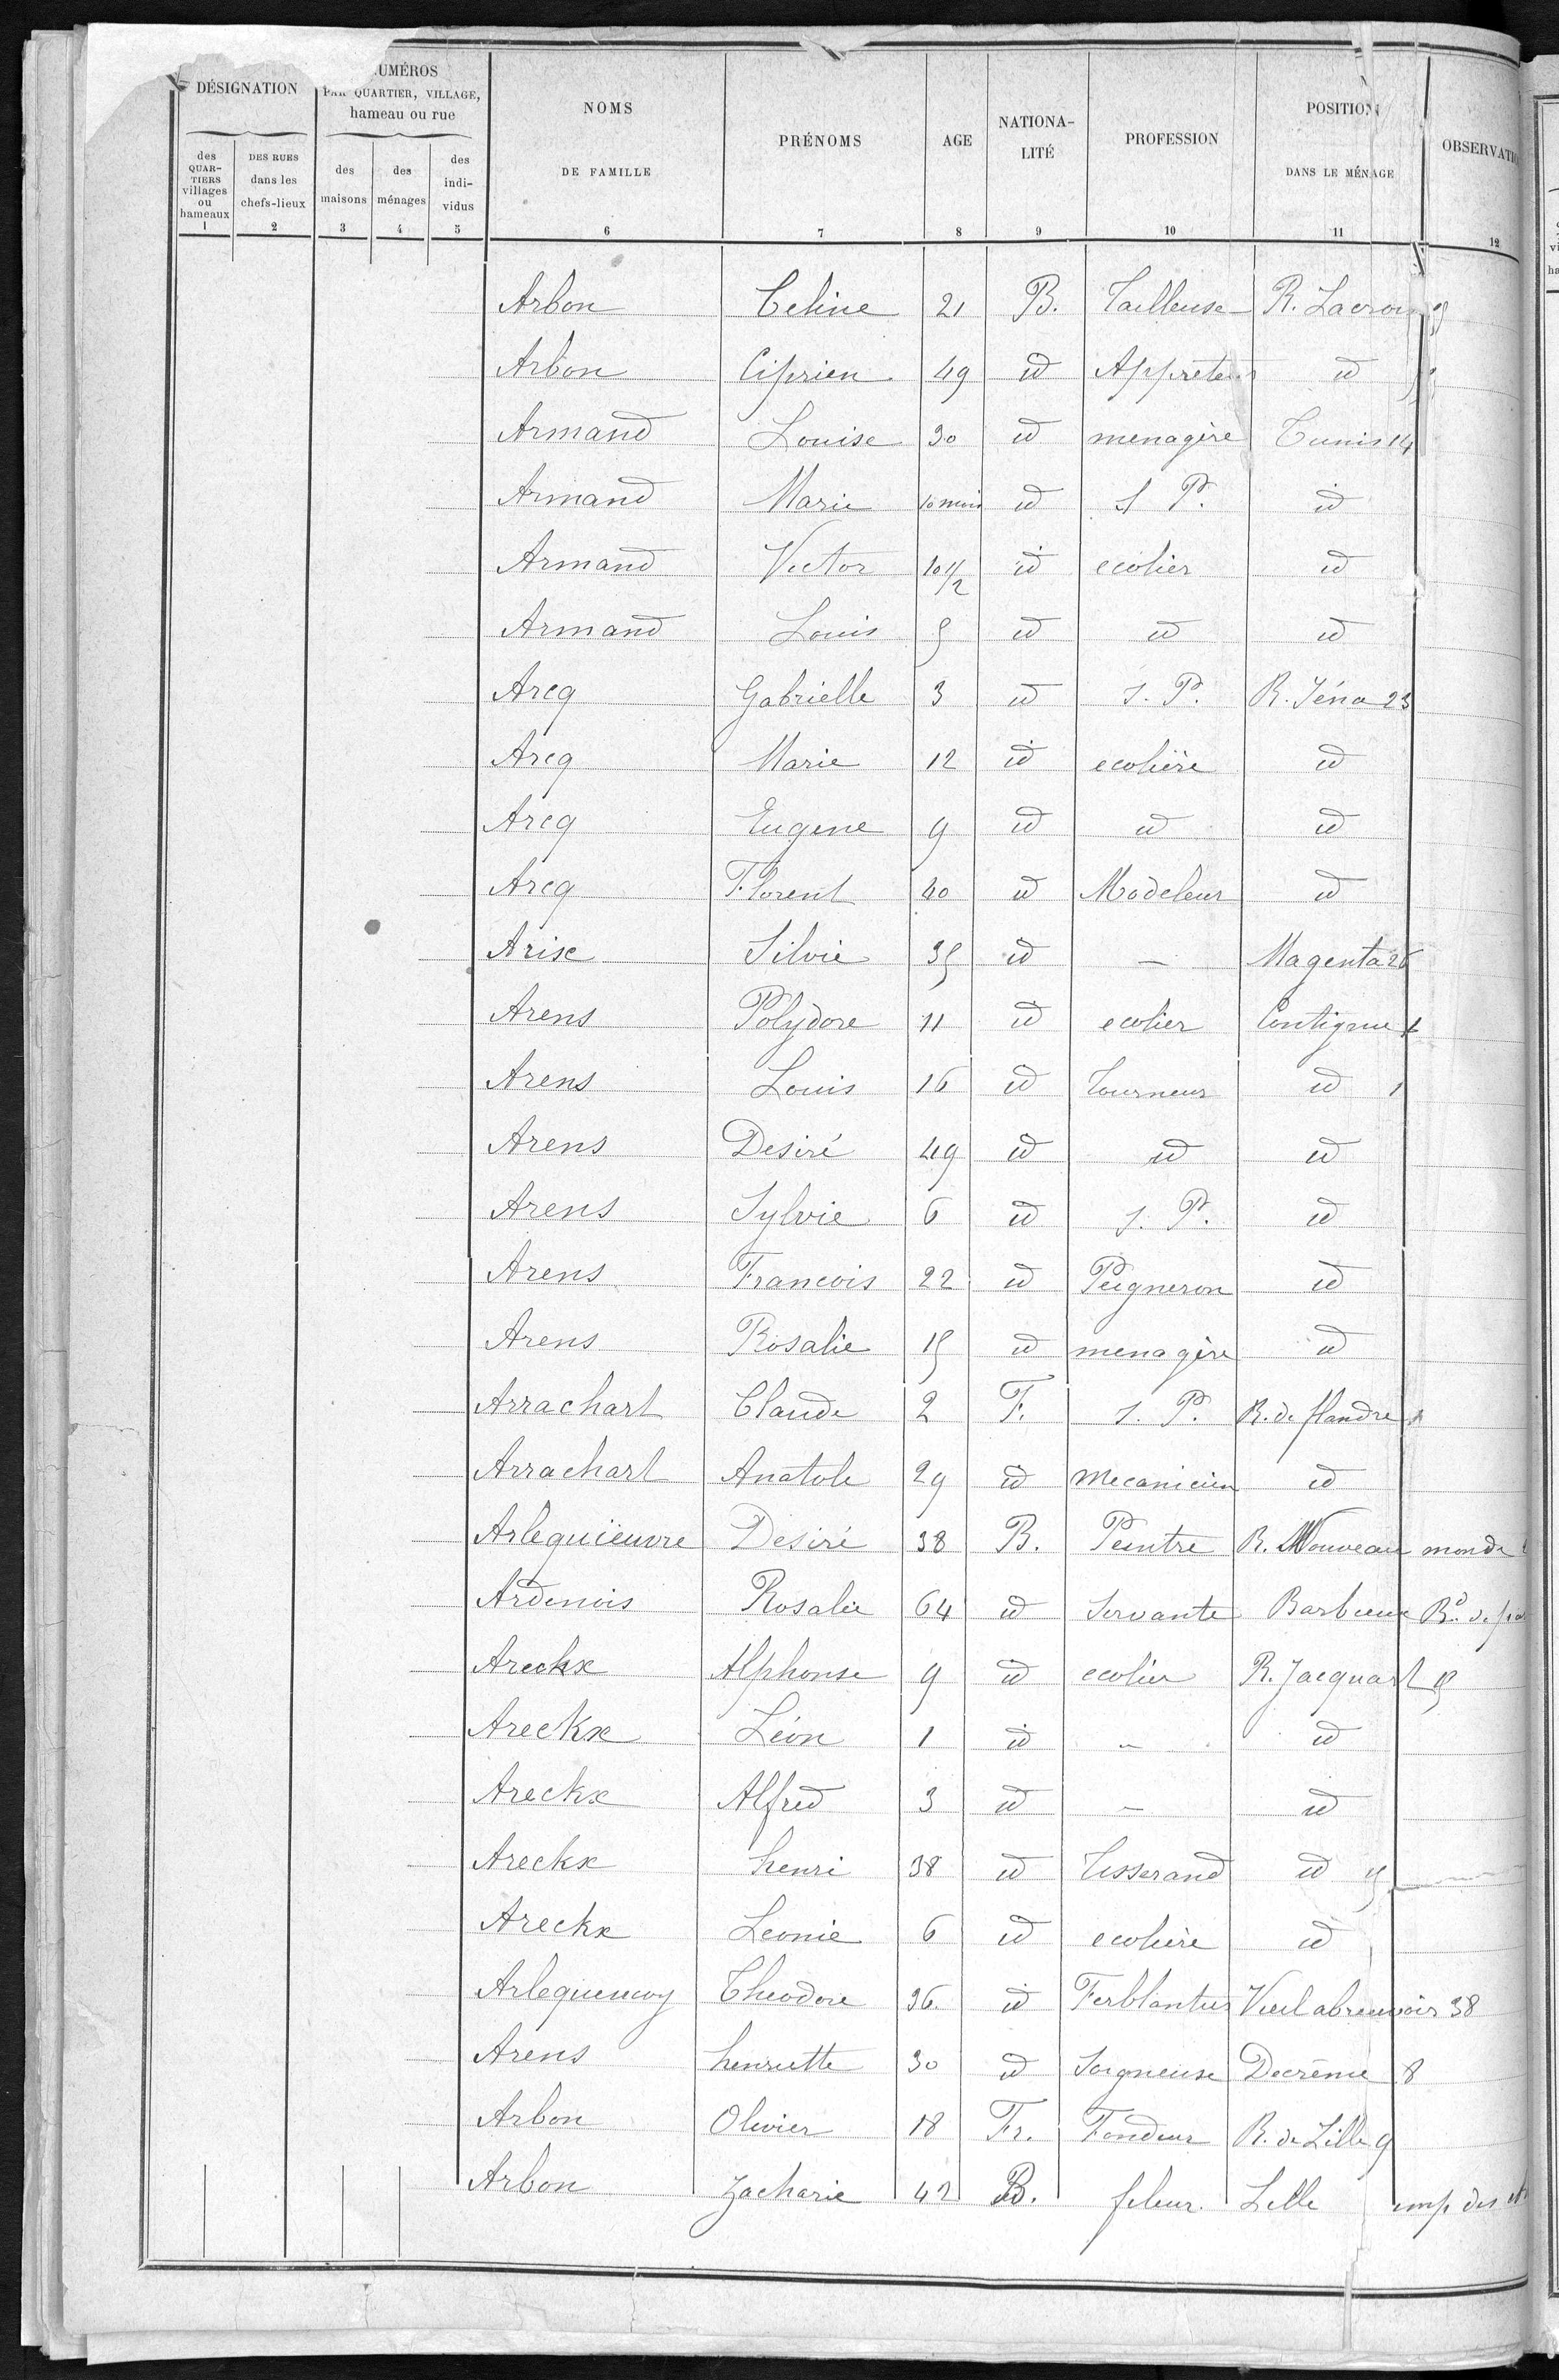 DÉSIGNATION
UMÉROS
PAR QUARTIER, VILLAGE,
hameau ou rue
NOMS
DE FAMILLE
PRÉNOMS
AGE
NATIONA-
LITÉ
PROFESSION
POSITION
DANS LE MÉNAGE
OBSERVATIO
des
QUAR-
TIERS
villages
ou
hameaux
DES RUES
dans les
chefs-lieux
des
maisons
des
ménages
des
indi-
vidus
1 2 3 4 5 6 7 8 9 10 11 12
Arbon Celine 21 B. Tailleuse R. Lacroix
Arbon Ciprien 49 id Appreteur id
Armand Louise 30 id menagère Tunis 14
Armand Marie 10 mois id S P. id
Armand Victor 10 1/2 id ecolier id
Armand Louis 5 id id id
Arcq Gabrielle 3 id S. P. R. Jéna 23
Arcq Marie 12 id ecolière id
Arcq Eugene 9 id id id
Arcq Florent 40 id Modeleur id
Arise Silvie 35 id — Magenta 26
Arens Polydore 11 id ecolier Contigue 1
Arens Louis 16 id Tourneur id 1
Arens Desiré 49 id id id
Arens Sylvie 6 id S. P. id
Arens Francois 22 id Peigneron id
Arens Rosalie 15 id menagère id
Arrachart Claude 2 F. S. P. R. de flandre
Arrachart Anatole 29 id mecanicien id
Arlequiëuvre Desiré 38 B. Peintre R. Nouveau monde
Ardenois Rosalie 64 id Servante Barbieux Bd. de
Areckx Alphonse 9 id ecolier R. Jacquart 15
Areckx Léon 1 id — id
Areckx Alfred 3 id — id
Areckx henri 38 id Tisserand id 15
Areckx Leonie 6 id ecolière id
Arlequencoy Theodore 36 id Ferblantier Vieil abreuvoir 38
Arens henriette 30 id Soigneuse Decrême 8
Arbon Olivier 18 Fr. Fondeur R. de Lille 9
Arbon Zacharie 42 B. fileur Lille imp. des